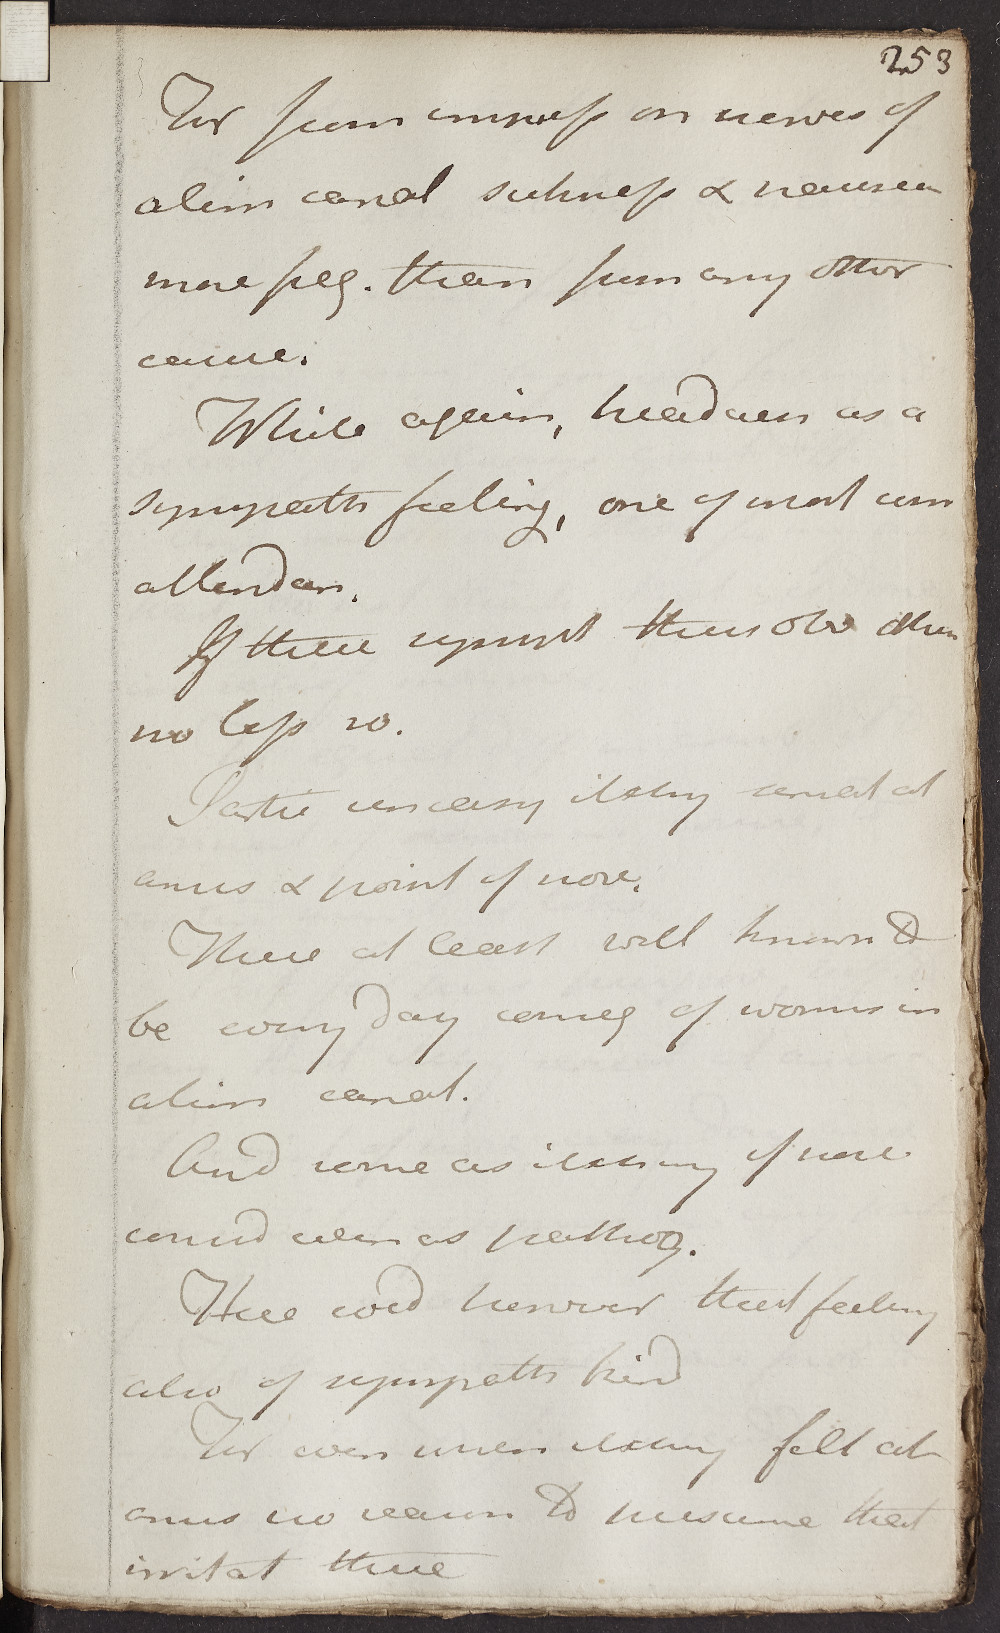 253
For from impress on nerves of
alim canal sickness & nausea
more freq. than from any other
cause.
While again, headach as a
sympath feeling, one of most com
attendan.
If these sympt thus obv others
no less so.
Partic uneasy itching sensat at
anus & point of nose.
These at least well known to
be every day conseq of worms in
alim canal.
And some as itching of nose
considd even as pathog.
Here wd however that feeling
also of sympath kind
For even when itching felt at
anus no reason to presume that
irritat there